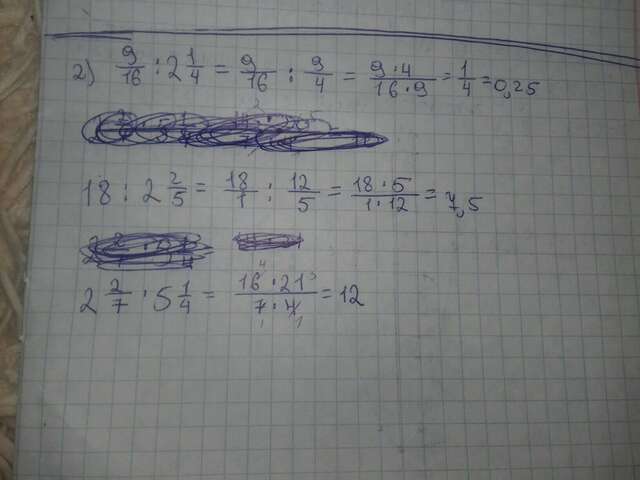 2) 9/16 : 2 1/4 = 9/16 : 9/4 = 9·4/16·9 = 1/4 = 0,25
18 : 2 2/5 = 18/1 : 12/5 = 18·5/1·12 = 7,5
2 2/7 · 5 1/4 = 16·21/7·4 = 12